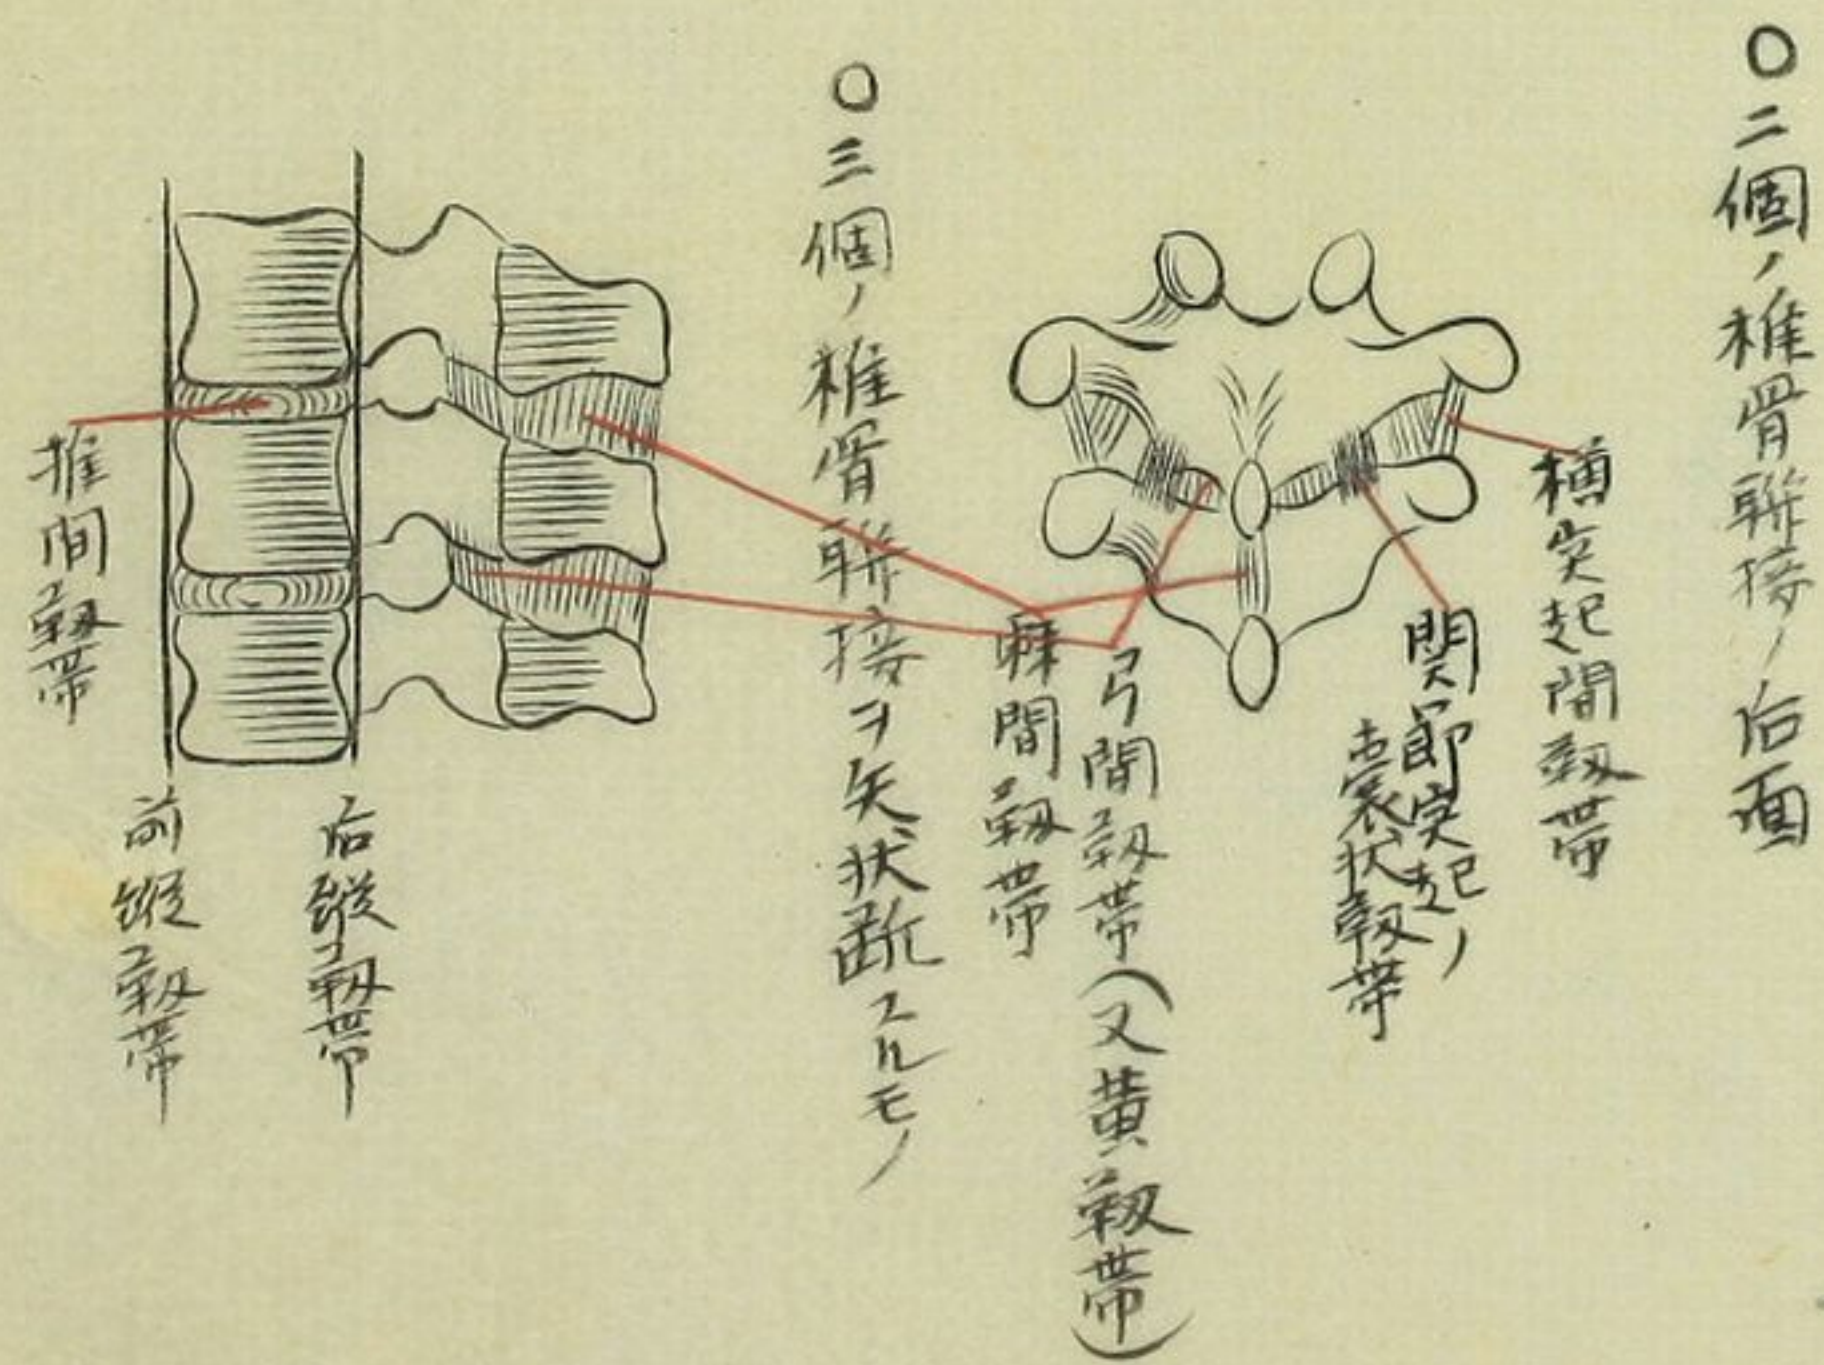 〇二個ノ椎骨聯接ノ后面
横突起間靱帯
関節突起ノ
嚢状靱帯
弓間靱帯(又黄靱帯)
棘間靱帯
〇三個ノ椎骨聯接ヲ矢状断スルモノ
后縦靱帯
前縦靱帯
椎間靱帯